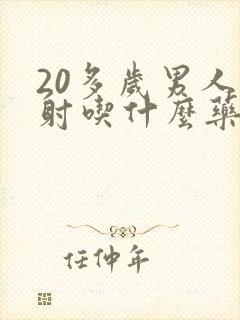 20多歲男人
射喫什麼藥
任仲年